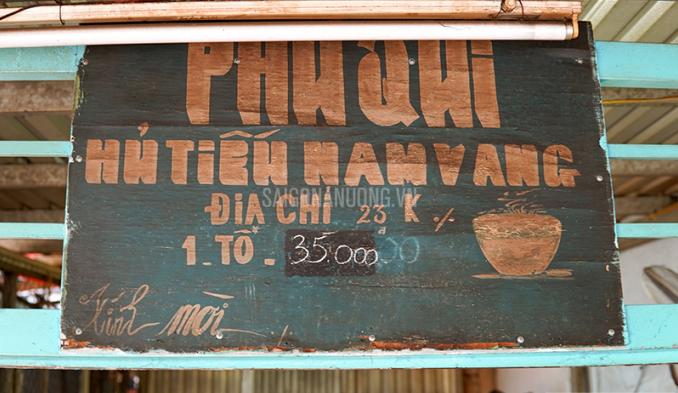 PHÚ QUÍ
HỦ TIẾU NAM VANG
SAIGONANUONG.VN
ĐỊA CHỈ 23 K %
1 - TÔ - 35.000
Kính mời